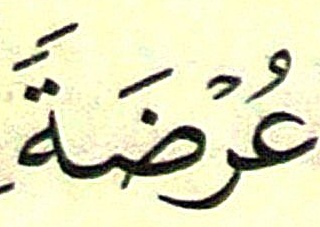 عُرْضَةً